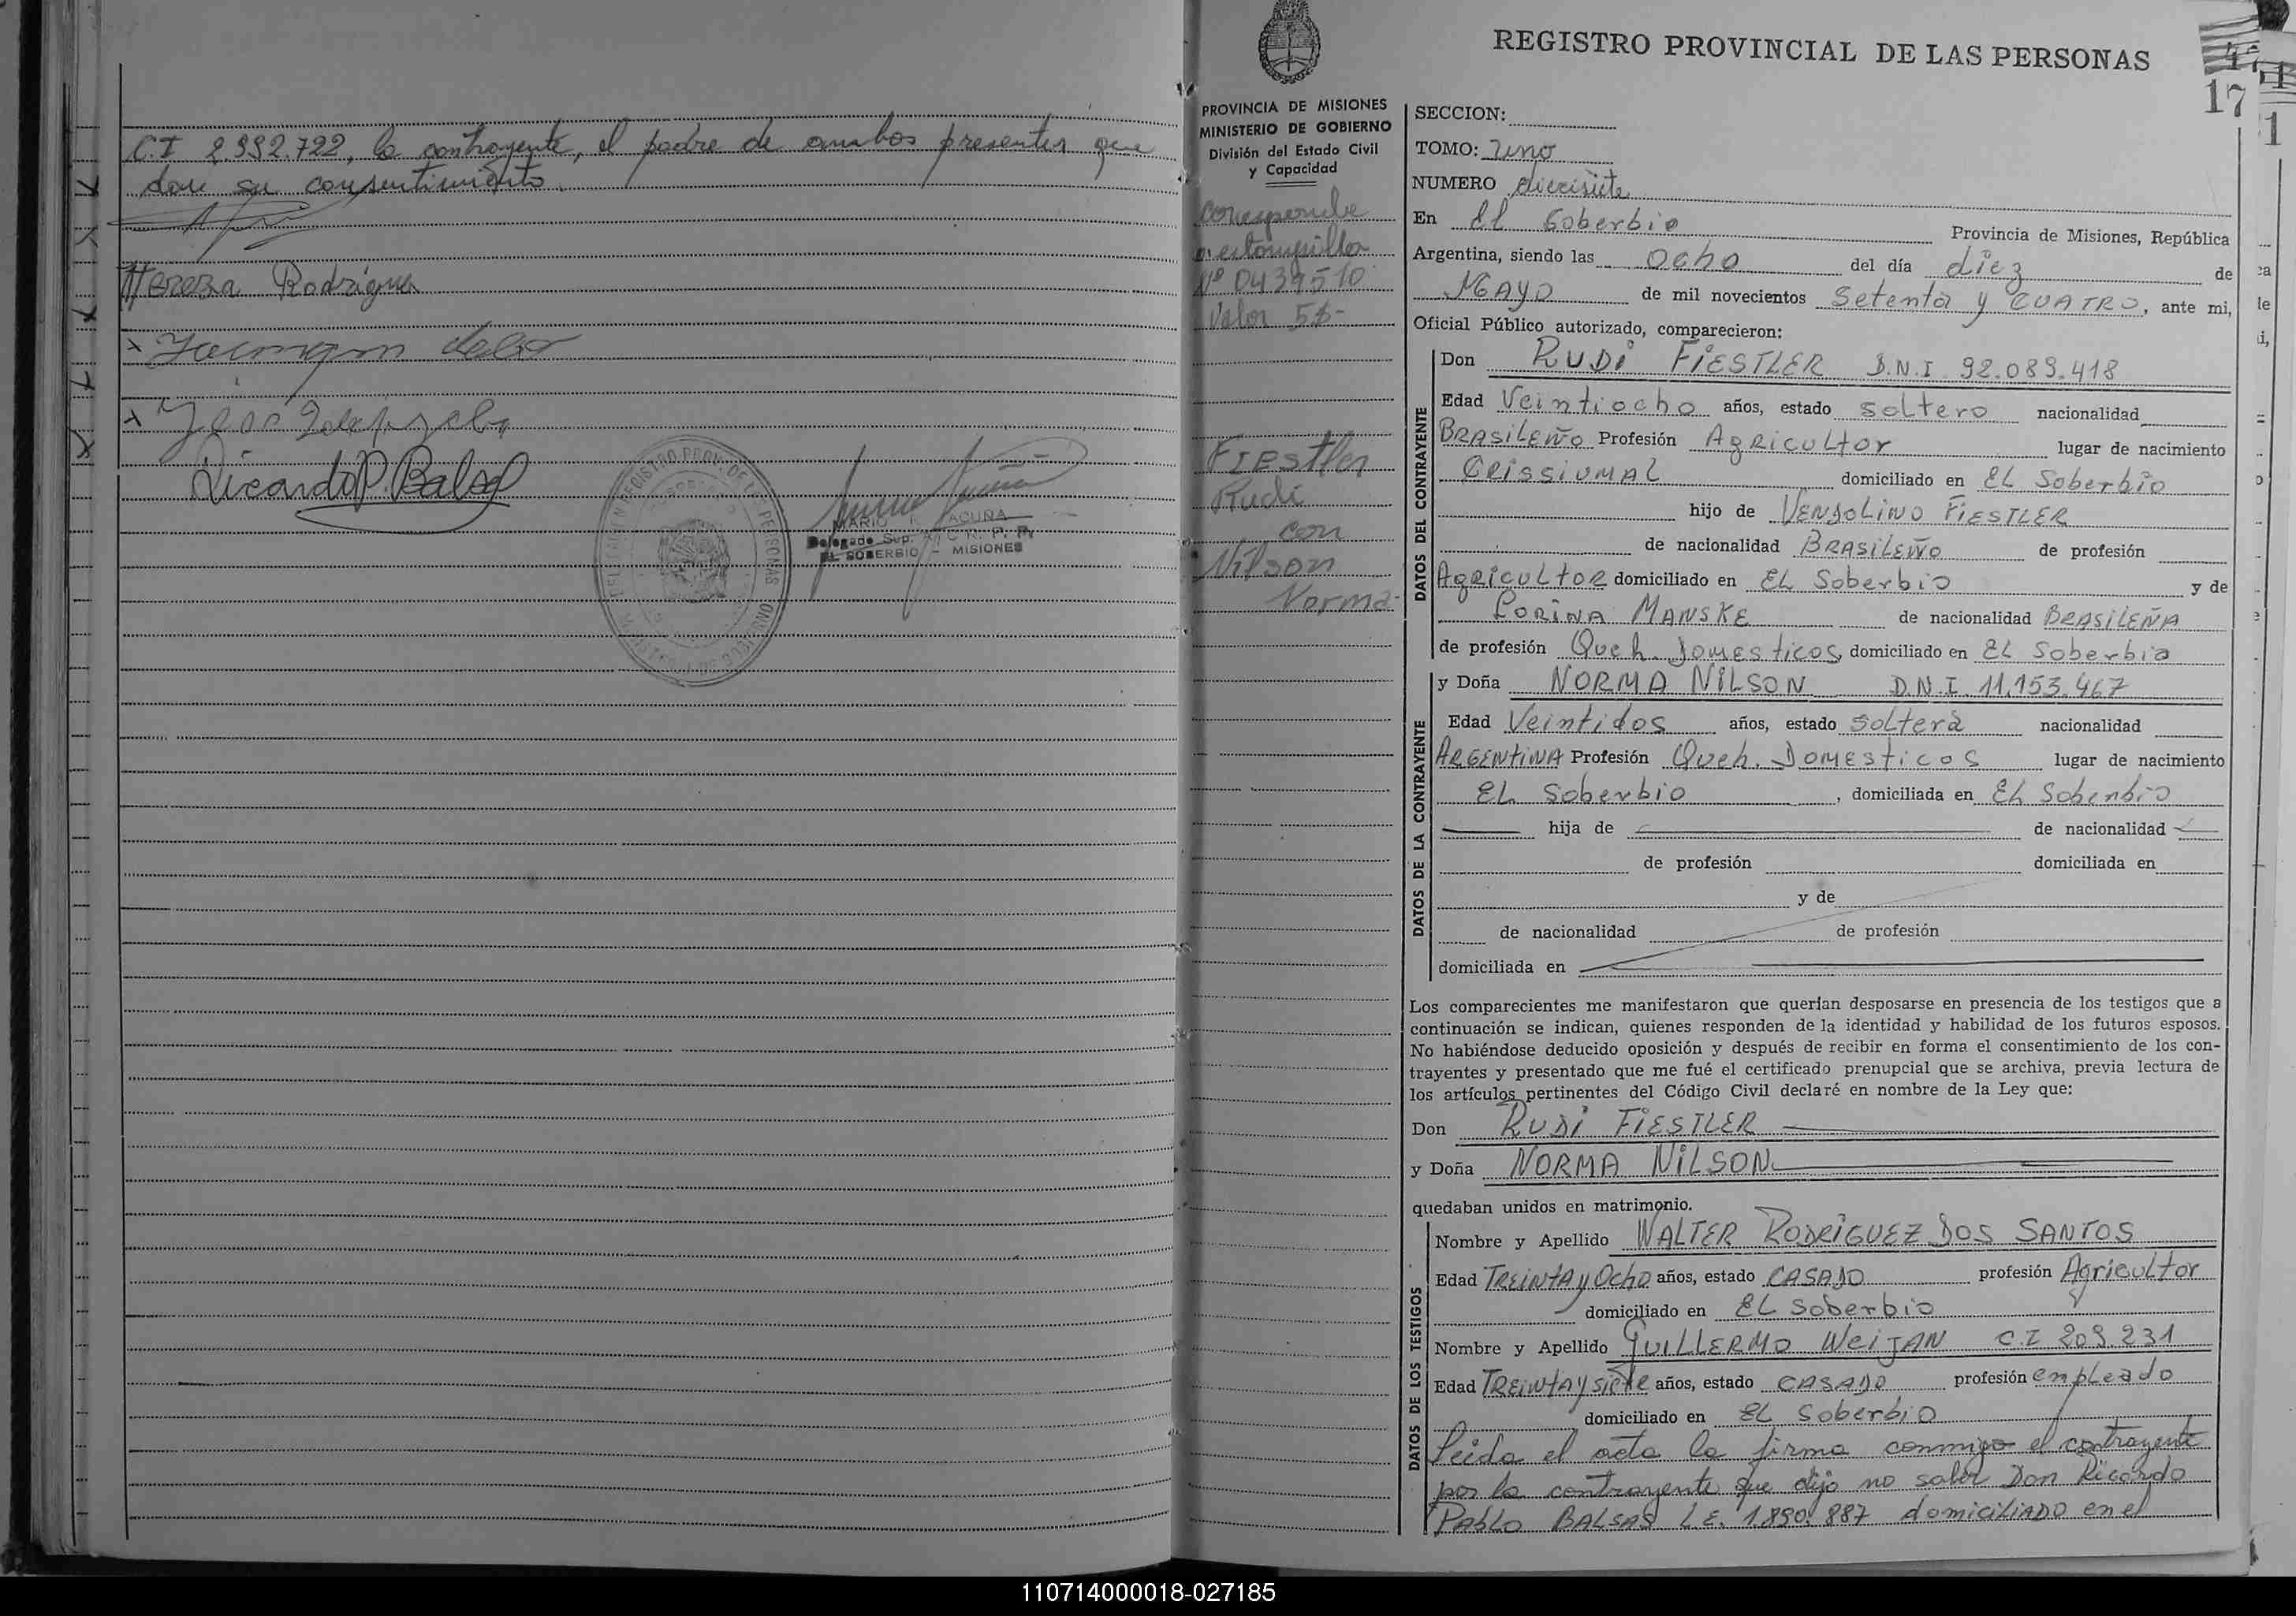 C.I 2.992.722, la contrayente, el padre de ambos presentes que
dan su consentimiento.
Rodrigues
Ricardo P. Balsas
REGISTRO PROV. DE LAS PERSONAS
MARIO F. ACUÑA
Delegado Sup. A/C R. P. P.
EL SOBERBIO - MISIONES
PROVINCIA DE MISIONES
MINISTERIO DE GOBIERNO
División del Estado Civil
y Capacidad
Corresponde
estampilla
Nº 0439510
Valor 5$-
FIEstler
Rudi
con
Nilson
Norma-
REGISTRO PROVINCIAL DE LAS PERSONAS
17
1
SECCION:
TOMO: Uno
NUMERO diecisiete
En El Soberbio Provincia de Misiones, República
Argentina, siendo las Ocho del día diez de
MAYO de mil novecientos Setenta y CUATRO, ante mi,
Oficial Público autorizado, comparecieron:
DATOS DEL CONTRAYENTE
Don RUDI FIESTLER D.N.I 92.089.418
Edad Veintiocho años, estado soltero nacionalidad
BRASILEÑO Profesión AgRicultor lugar de nacimiento
CRISSIUMAL domiciliado en EL Soberbio
hijo de VENDOLINO FIESTLER
de nacionalidad BRASILEÑO de profesión
AgRicULtOR domiciliado en EL Soberbio y de
LORINA MANSKE de nacionalidad BRASILEÑA
de profesión Queh. Domesticos, domiciliado en EL Soberbio
DATOS DE LA CONTRAYENTE
y Doña NORMA NILSON D.N.I. 11.153.467
Edad Veintidos años, estado soltera nacionalidad
ARGENtiNA Profesión Queh. DOMEsticos lugar de nacimiento
EL Soberbio, domiciliada en EL Soberbio
hija de de nacionalidad
de profesión domiciliada en
y de
de nacionalidad de profesión
domiciliada en
Los comparecientes me manifestaron que querían desposarse en presencia de los testigos que a
continuación se indican, quienes responden de la identidad y habilidad de los futuros esposos.
No habiéndose deducido oposición y después de recibir en forma el consentimiento de los con-
trayentes y presentado que me fué el certificado prenupcial que se archiva, previa lectura de
los artículos pertinentes del Código Civil declaré en nombre de la Ley que:
Don RUDI FIESTLER
y Doña NORMA NILSON
quedaban unidos en matrimonio.
DATOS DE LOS TESTIGOS
Nombre y Apellido WALTER RODRIGUEZ DOS SANTOS
Edad TREINtA y Ocho años, estado CASADO profesión Agricultor
domiciliado en EL Soberbio
Nombre y Apellido GUILLERMO WeiJAN C.I 209.231
Edad TREINtA y siete años, estado CASADO profesión empleado
domiciliado en EL Soberbio
Leida el acta la firma conmigo el contrayente
por la contrayente que dijo no saber Don Ricardo
PAbLo BALSAS L.E. 1.890.887 domiciliADO en el
110714000018-027185